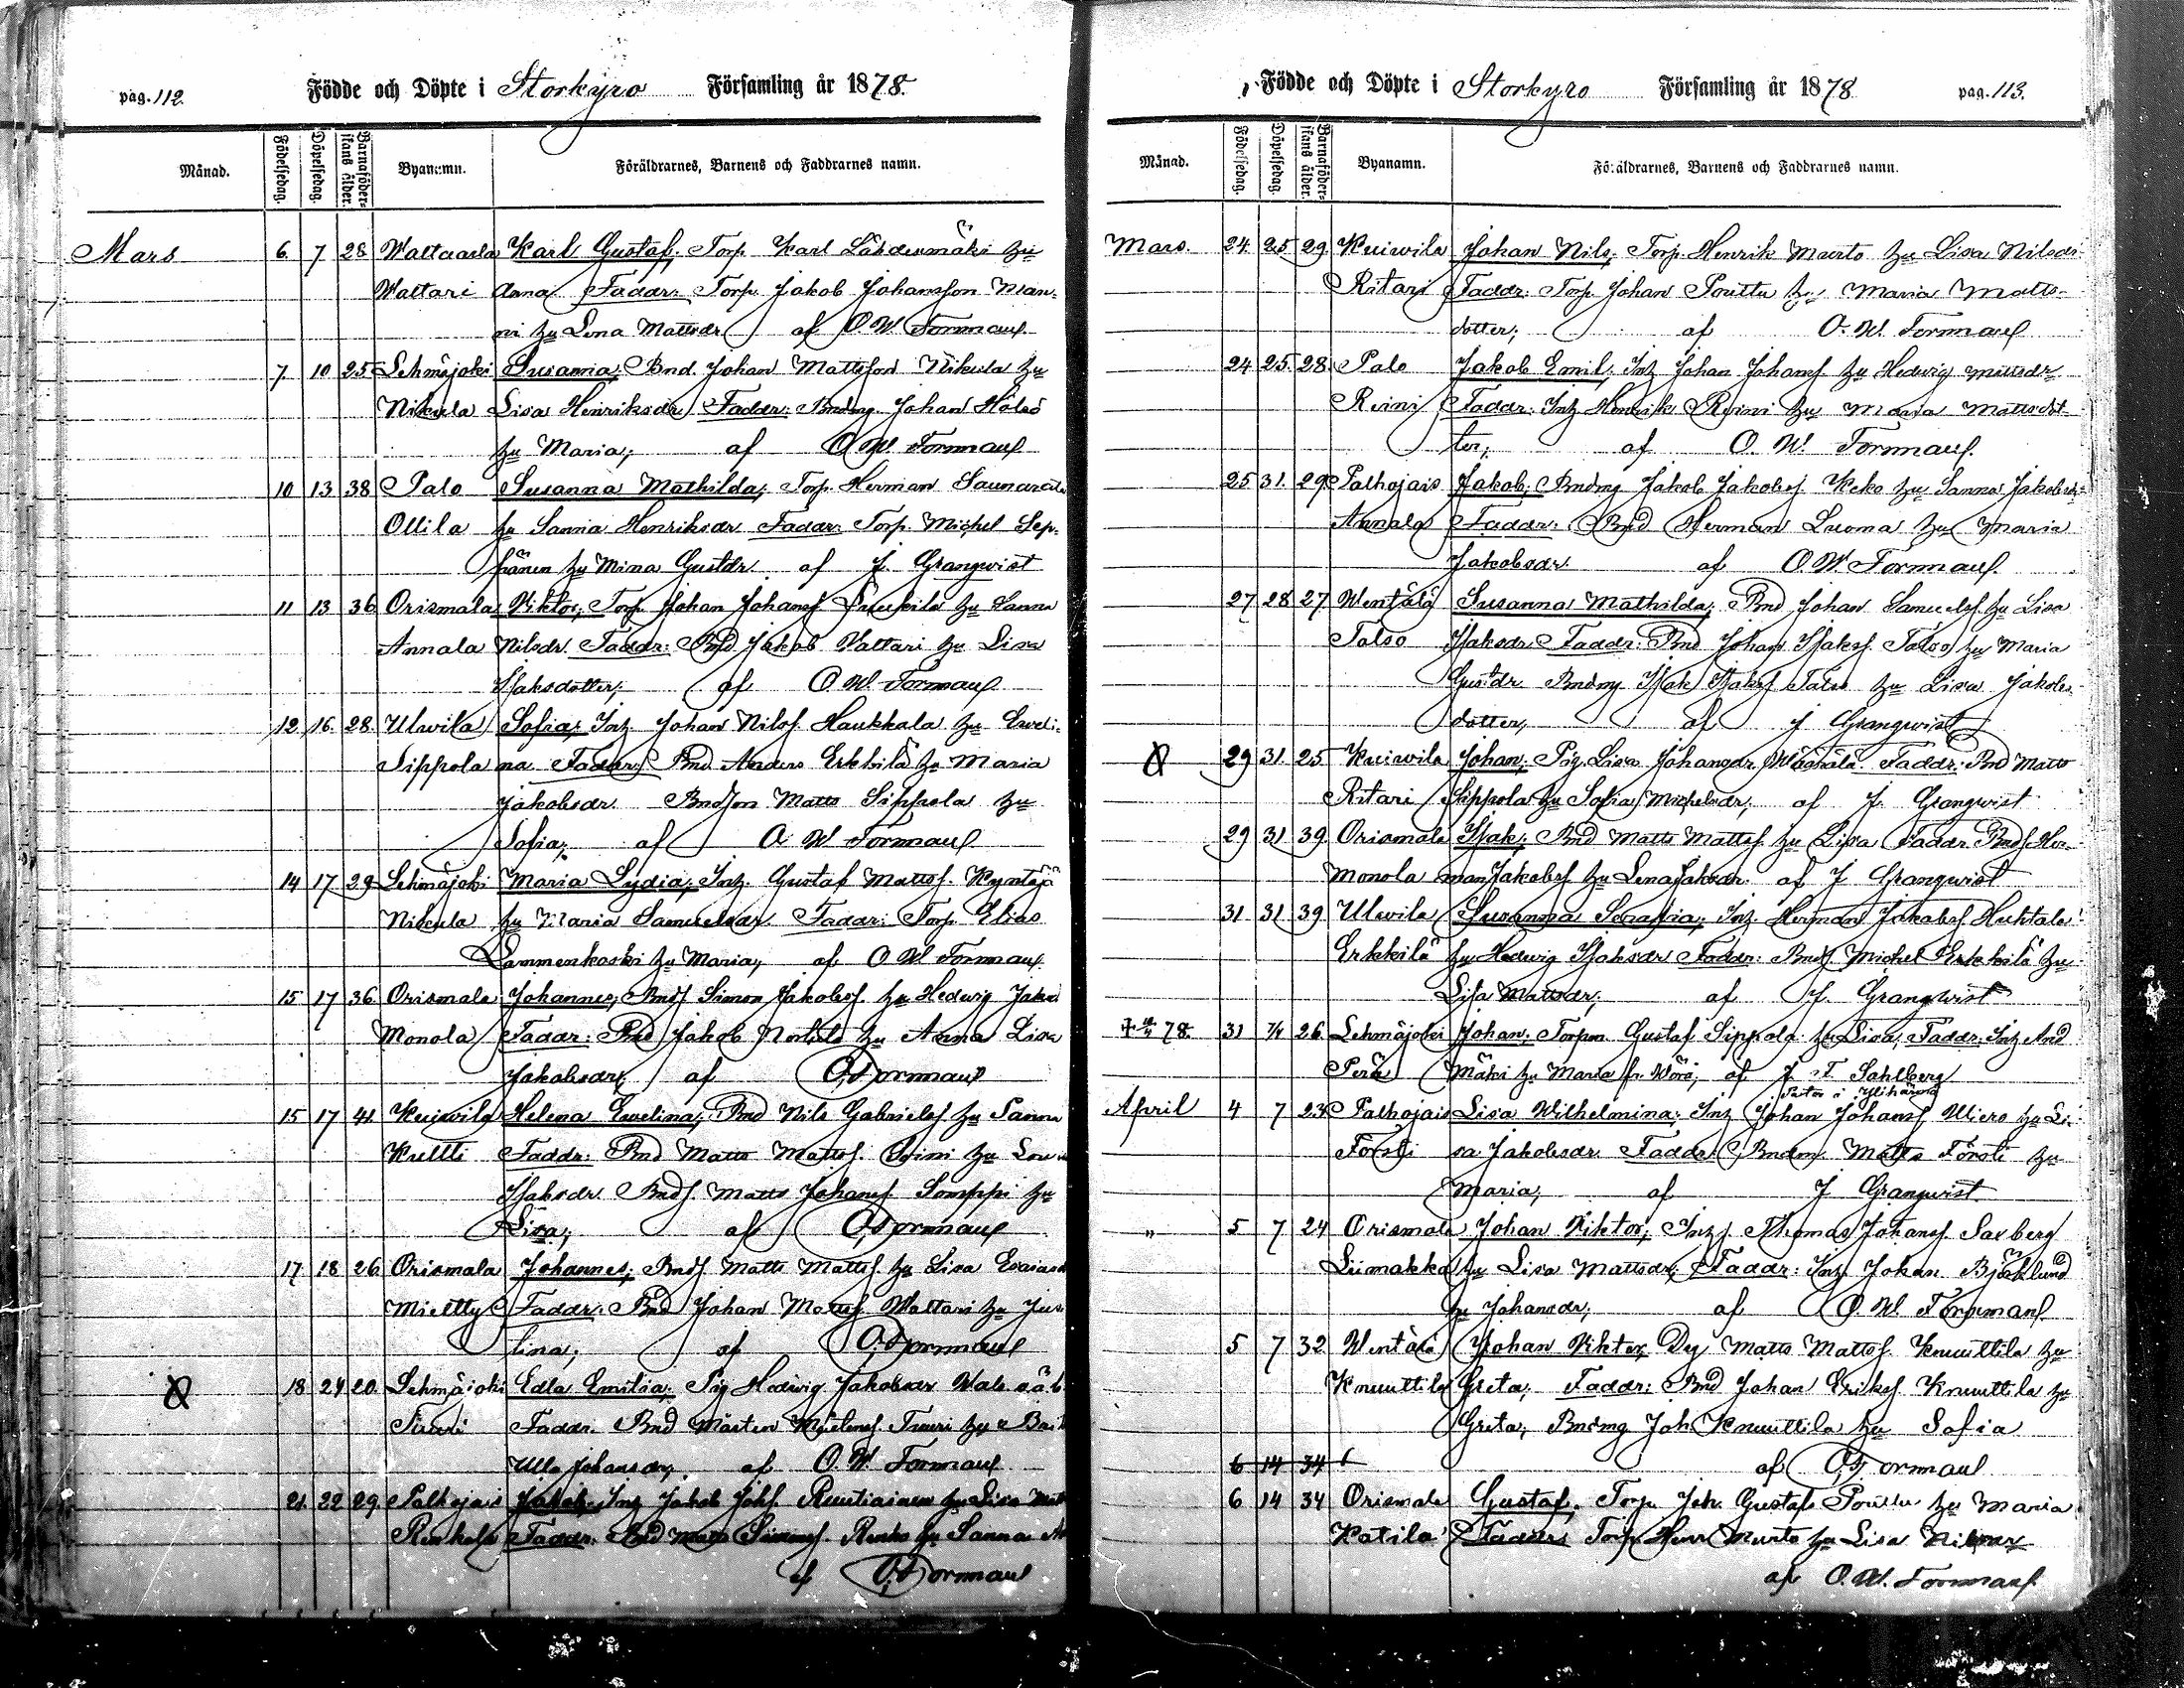 pag. 112. Födde och Döpte i Storkyro Församling år 1878.
Månad. Födelsedag. Döpelsedag. Barnaföderskans ålder. Byanamn. Föräldrarnes, Barnens och Faddrarnes namn.
Mars 6 7 28 Waltaarla Karl Gustaf; Torp. Karl
Wattari Anna Faddr: Torp. Jakob Johansson Man-
ni hu Lena Mattsdr af O. W. Forsman
7 10 25 Lehmäjoki Susanna; Bnd. Johan Mattsson Nikula hu
Nikula Lisa Henriksdr Faddr: Bndmg Johan
hu Maria; af O. W. Forsman
10 13 38 Palo Susanna Mathilda; Torp. Herman
Ollila hu Sanna Henriksdr Faddr: Torp. Michel Sep-
pänen hu Mina Gustdr. af J. Granqwist
11 13 36 Orismala Viktor; Torp. Johan Johans hu Sanna
Annala Nilsdr. Faddr: Bnd Jakob Vattari hu Lisa
Isaksdotter; af O. W. Forsman
12 16 28 Ulwila Sofia; Inh. Johan Nilss. Haukkala hu Eveli-
Sippola na Faddr: Bnd Anders Erkkilä hu Maria
Jakobsdr. Bndson Matts Sippola hu
Sofia; af O. W. Forsman
14 17 29 Lehmäjoki Maria Lydia; Inh. Gustaf Mattss. Kyntäjä
Nikula hu Maria Samuelsdr. Faddr: Torp. Elias
Lammenkoski hu Maria; af O. W. Forsman
15 17 36 Orismala Johannes; Bnds Simon Jakobss. hu Hedwig
Monola Faddr: Bnd Jakob hu Anna Lisa
Jakobsdr; af O. Forsman
15 17 41 Kuiwila Helena Ewelina; Bnd Nils Gabrielss hu Sanna
Kuitti Faddr: Bnd Matts Mattss. hu
Isaksdr. Bnds. Matts Johanss. Somppi hu
Lisa; af O. Forsman
17 18 26 Orismala Johannes; Bnds Matts Mattss. hu Lisa
Mietty Faddr: Bnd Johan Wattari hu
lina; af O. Forsman
18 24 20 Lehmäjoki Edla Emilia; Pig Hedwig Jakobsdr
Faddr. Bnd Mårten
Ulla Johansdr; af O. W. Forsman
21 22 29 Palhojais Jakob; Inh Jakob hu Lisa
Renkola Faddr: Bnd Matts hu Sanna
af O. Forsman
Födde och Döpte i Storkyro Församling år 1878 pag. 113.
Månad. Födelsedag. Döpelsedag. Barnaföderskans ålder. Byanamn. Föräldrarnes, Barnens och Faddrarnes namn.
Mars. 24 25 29 Kuiwila Johan Nils; Torp. Henrik Murto hu Lisa Nilsdr
Ritari Faddr: Torp Johan Pouttu hu Maria Matts-
dotter; af O. W. Forsman
24 25 28 Palo Jakob Emil; Inh Johan Johanss hu Hedwig Mattsdr
Reini Faddr: Inh Henrik Reini hu Maria Mattsdot-
ter; af O. W. Forsman
25 31 29 Palhojais Jakob; Bndmg Jakob Jakobss Keko hu Sanna Jakobsdr
Annala Faddr: Bnd Herman Luoma hu Maria
Jakobsdr. af O. W. Forsman
27 28 27 Wentälä Susanna Mathilda; Bnd Johan Samuelss. hu Lisa
Talso Isaksdr Faddr: Bnd Johan Isakss. Talso hu Maria
Gustdr Bndmg Isak Isakss Talso hu Lisa Jakobs-
dotter; af J Granqwist
29 31 25 Kuiwila Johan; Pig. Lisa Johansdr Faddr: Bnd Matts
Ritari Sippola hu Sofia Michelsdr; af J. Granqwist
29 31 39 Orismala Isak; Bnd Matts Mattss. hu Lisa Faddr. Bnds. Her-
Monola man Jakobss hu Lena Isaksdr. af J Granqwist
31 31 39 Ulwila Susanna Serafia; Inh. Herman Jakobss. Huhtala
Erkkilä hu Hedwig Isaksdr Faddr: Bnds Michel Erkkilä hu
Lisa Mattsdr; af J. Granqwist
78 31 7/4 26 Lehmäjoki Johan; Torpm. Gustaf Sippola hu Lisa; Faddr: Inh And
Perä Mäki hu Maria fr. Wörå; af J. F. Sahlberg
Pastor i Ylihärmä
April 4 7 23 Palhojais Lisa Wilhelmina; Inh Johan Johanss. hu Li-
Försti sa Jakobsdr Faddr Bndm. Matts Försti hu
Maria; af J Granqwist
" 5 7 24 Orismala Johan Viktor; Inh. Thomas Johanss. Saxberg
Liimakka hu Lisa Mattsdr; Faddr: Inh Johan Björklund
hu Johansdr; af O. W. Forsman
5 7 32 Wentälä Johan Viktor; Matts Mattss. Knuuttila hu
Knuuttila Greta; Faddr: Bnd Johan Erikss. Knuuttila hu
Greta; Bndmg Joh Knuuttila hu Sofia
6 14 34 af O. Forsman
6 14 34 Orismala Gustaf. Torp. Joh. Gustafs Pouttu hu Maria
Katila Faddr: Torp Henr Murto hu Lisa Nilsdr
af O. W. Forsman